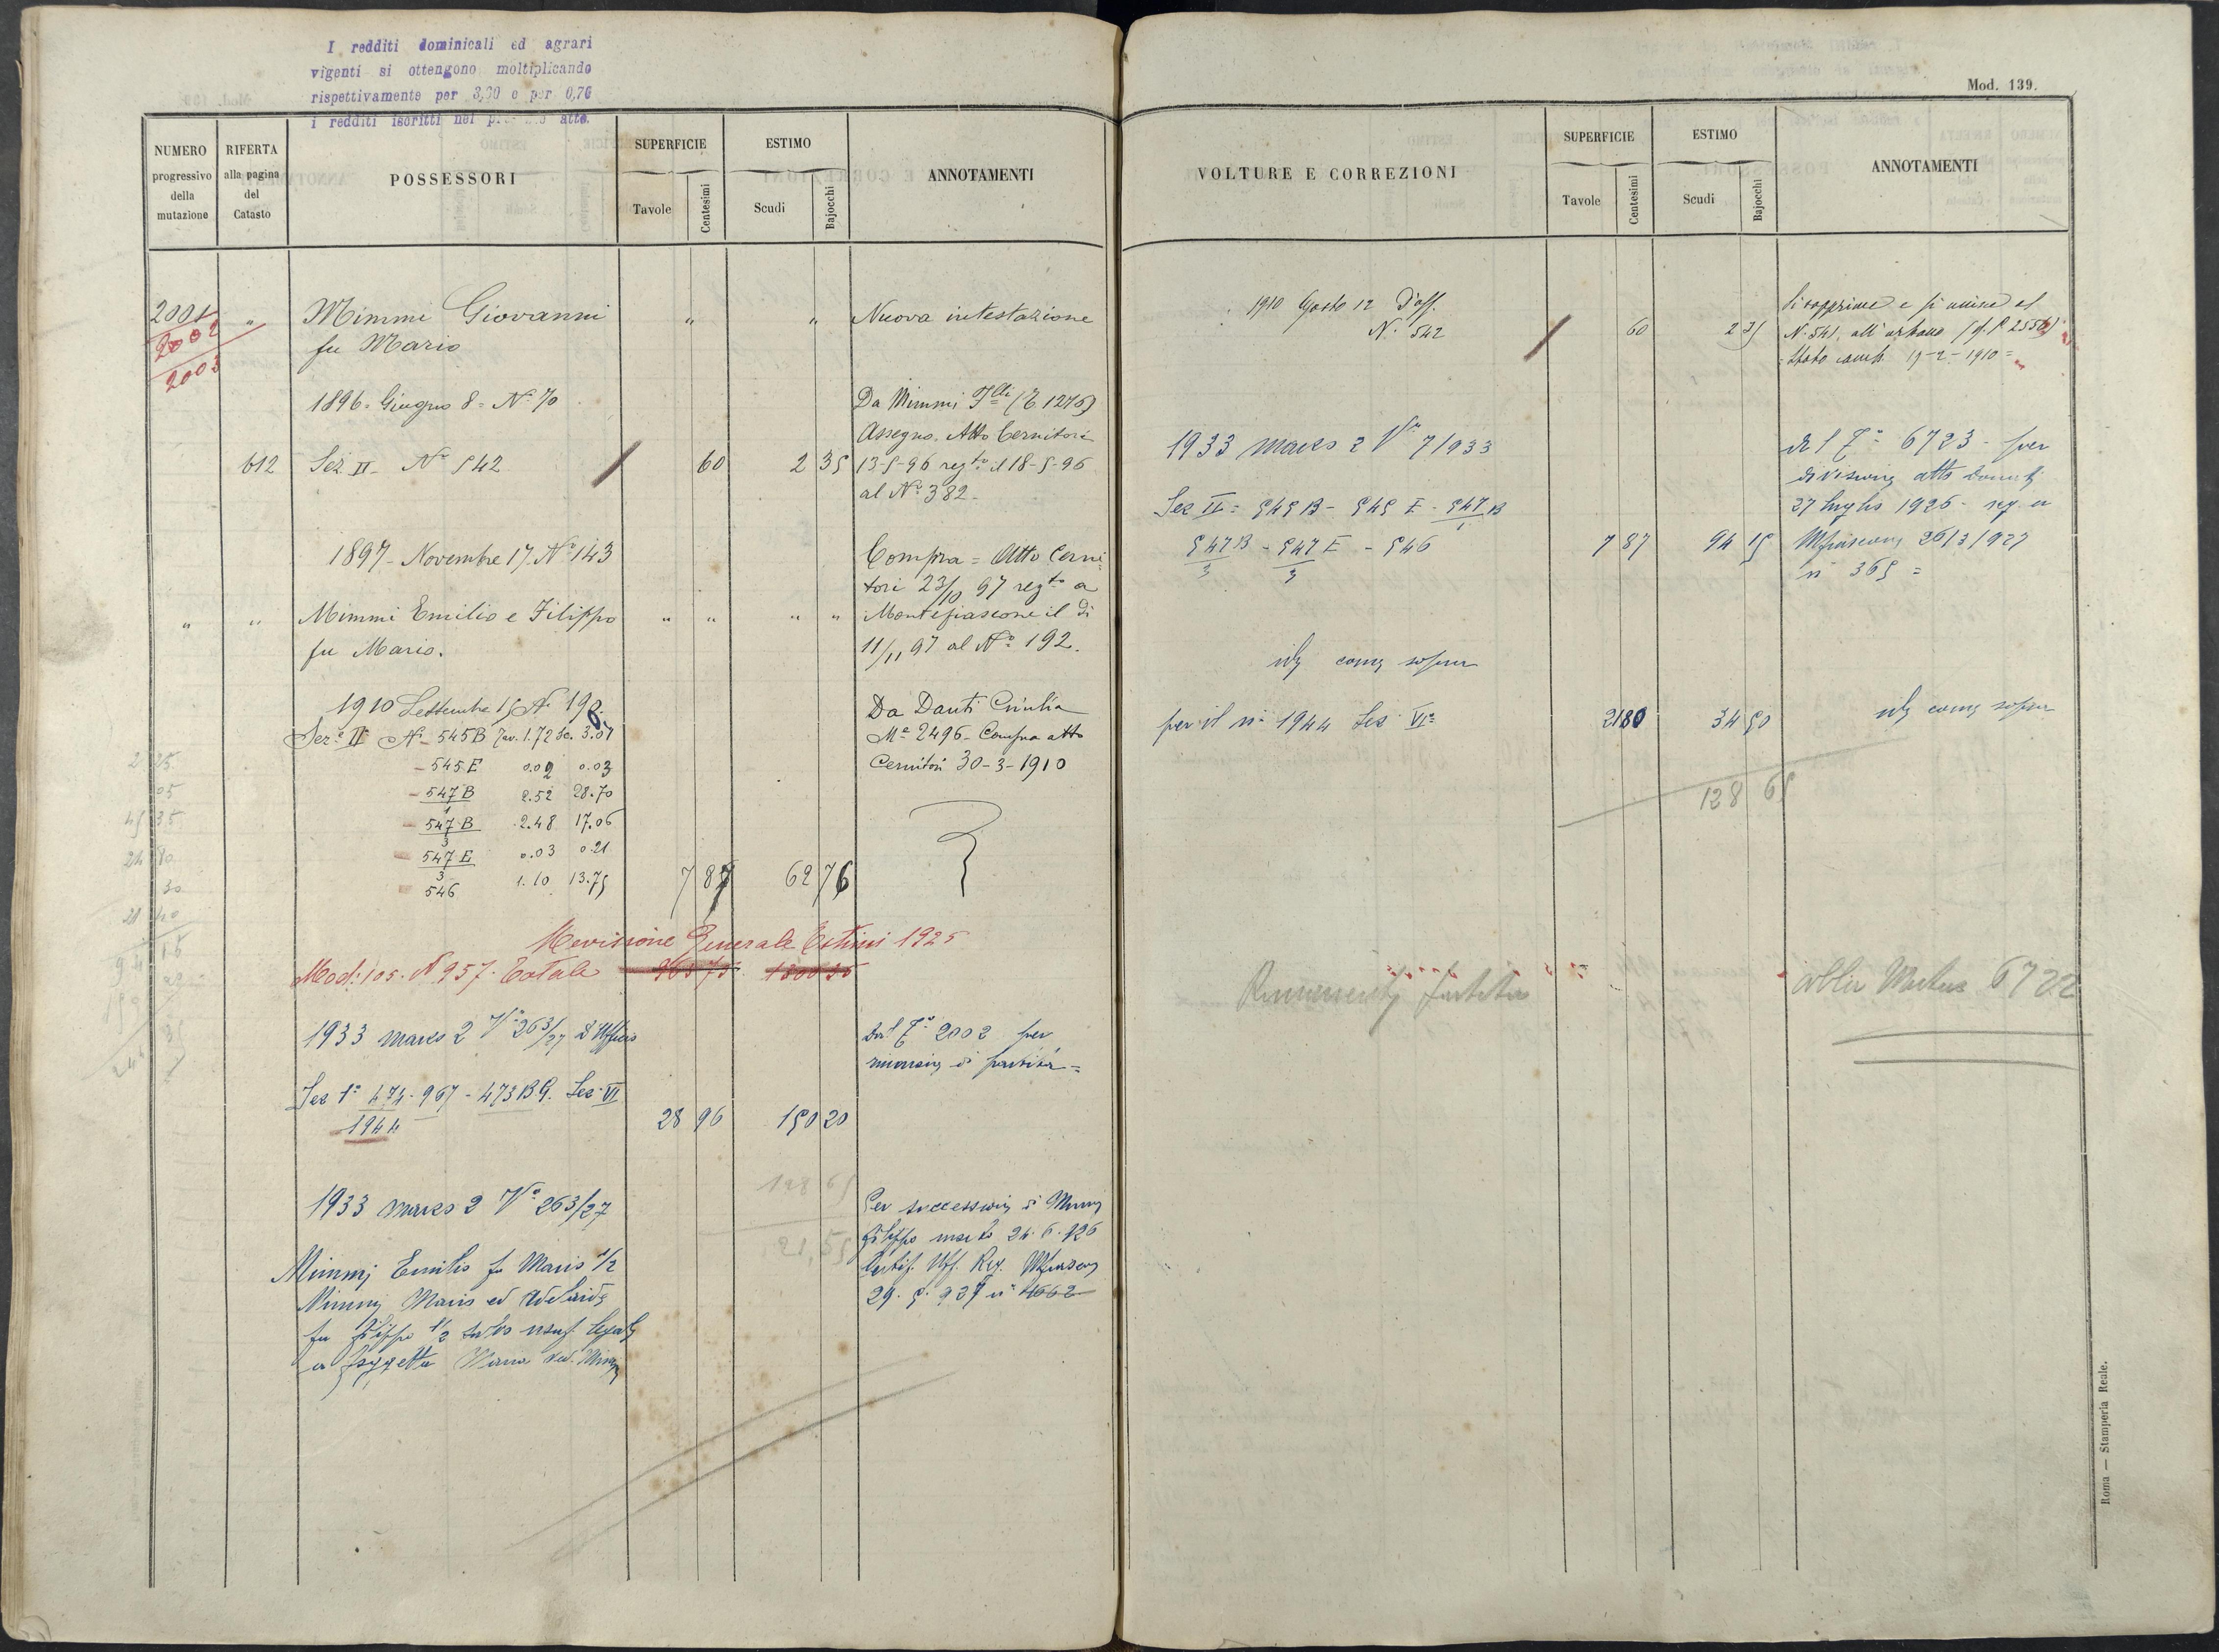 I redditi dominicali ed agrari
vigenti si ottengono moltiplicando
rispettivamente per 3,30 e per 0,70
i redditi iscritti nel atto.
NUMERO
progressivo
della
mutazione
RIFERTA
alla pagina
del
Catasto
POSSESSORI
SUPERFICIE
Tavole
Centesimi
ESTIMO
Scudi
Bajocchi
ANNOTAMENTI
2001
2002
2003
" Mimmi Giovanni " " Nuova intestazione
fu Mario
1896 = Giugno 8 = N° 70
Da Mimmi F.lli (C. 1276)
Assegno. Atto Cernitori
612 Sez II - N° 542 60 2 35 13-5-96 reg.to il 18-5-96
al N° 382 -
1897 - Novembre 17. N° 143
Compra = Atto Cerni=
tori 23/10 97 reg.to a
" " Mimmi Emilio e Filippo " " " " Montefiascone il dì
fu Mario. 11/11 97 al N° 192.
1910 Settembre 15 N° 198. Da Danti Giulia
Sez.e II N° - 545B Tav. 1.72 Sc. 3.01 M.e 2496 - Compra atto
- 545.E 0.02 0.03 Cernitori 30-3-1910
- 547B/1 2.52 28.70
- 547B/3 2.48 17.06
547E/3 0.03 0.21
546 1.10 13.75 7 87 62 76
Revisione Generale Estimi 1925
Mod: 105. N 957. Totale
1933 marzo 2 V° 263/27 D'Ufficio dal C° 2002 per
riunione di partita =
Sez 1ª 474 - 967 - 473 B 9. Sez VI
1944 28 96 150 20
128 65
21,55
1933 marzo 2 V° 263/27 Per successione di Mimmi
Filippo morto 24.6.926
Mimmi Emilio fu Mario 1/2 Certif. Uff. Reg. Mfiascone
Mimmi Mario ed Adelaide 29. 5. 927 n° 4662
fu Filippo 1/2 salvo usuf. legale
a Maria ved. Mimmi
Mod. 139.
VOLTURE E CORREZIONI
SUPERFICIE
Tavole
Centesimi
ESTIMO
Scudi
Bajocchi
ANNOTAMENTI
1910 Agosto 12 D'uff. Si sopprime e si unisce al
N. 542 60 2 35 N. 541, all'urbano
Stato camb. 19-2-1910 =
1933 marzo 2 V° 7/933 al C° 6723 - per
divisione atto Donati
Sez II = 545B - 545E - 547B/1 27 luglio 1926 - reg. a
547B/3 - 547E/3 - 546 7 87 94 15 Mfiascone 26/3/927
n° 365 =
id come sopra
per il n° 1944 Sez VI 21 80 34 50 id come sopra
128 65
Rimanente partita alla Voltura 6722
Roma — Stamperia Reale.